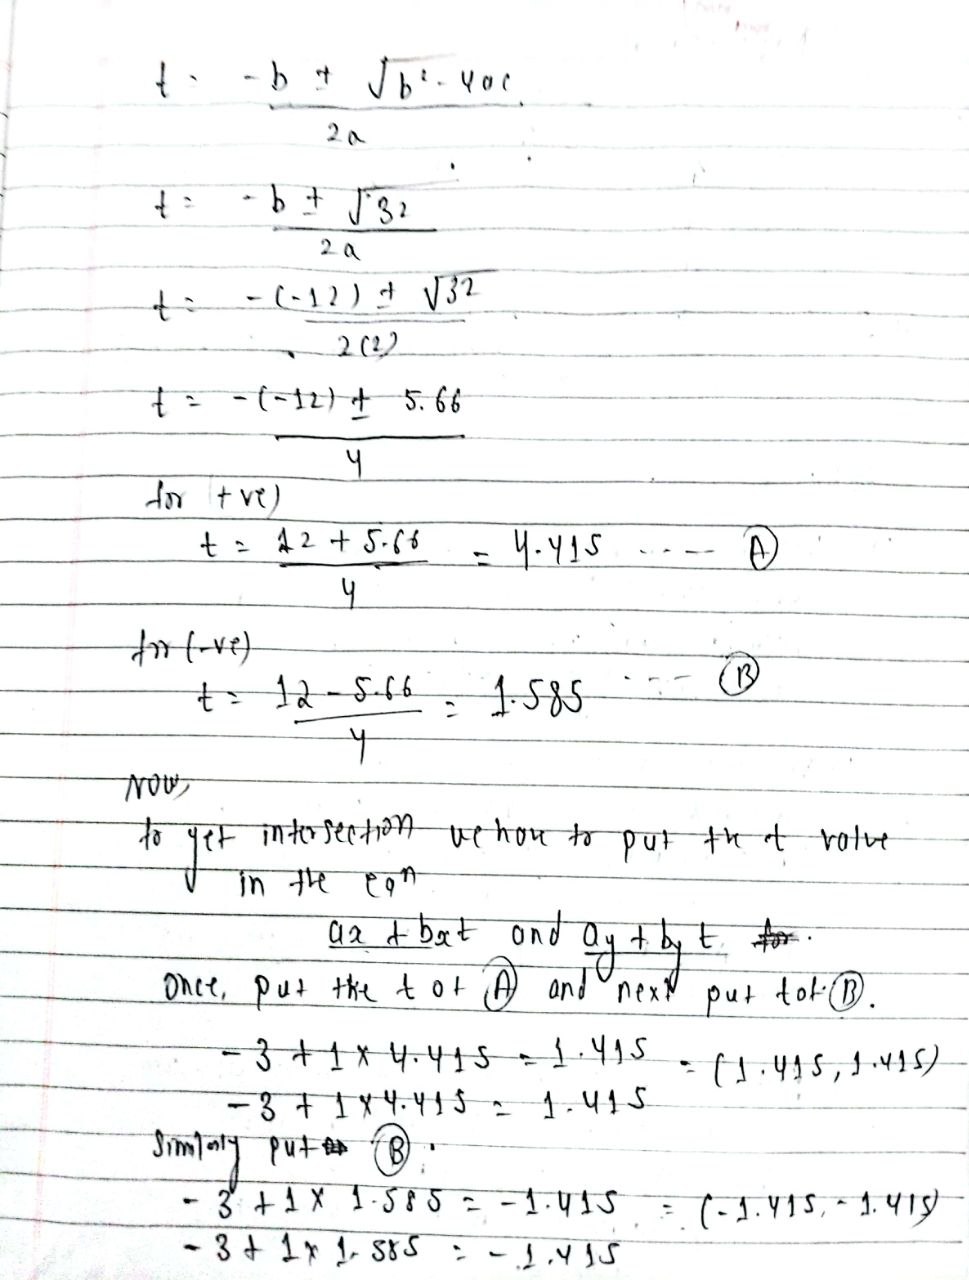 t = -b ± √b² - 4ac
2a
t = -b ± √32
2a
t = -(-12) ± √32
2(2)
t = -(-12) ± 5.66
4
for +ve)
t = 12 + 5.66 = 4.415 ---- Ⓐ
4
for (-ve)
t = 12 - 5.66 = 1.585 ---- Ⓑ
4
Now,
to get intersection we have to put the t value
in the eqn
ax + bxt and ay + by t
Once, put the t of Ⓐ and next put t of Ⓑ.
-3 + 1 × 4.415 = 1.415 = (1.415, 1.415)
-3 + 1 × 4.415 = 1.415
Similarly put Ⓑ.
-3 + 1 × 1.585 = -1.415 = (-1.415, -1.415)
-3 + 1 × 1.585 = -1.415